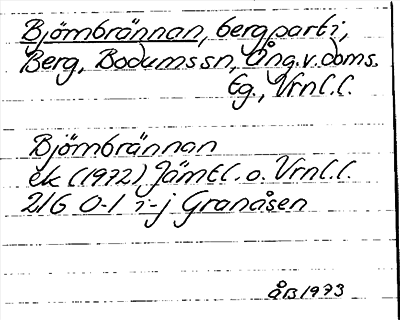 Björnbrännan, bergparti,
Berg, Bodums sn, Ång. v. doms.
tg., Vrnl.l.
Björnbrännan
ek (1972) Jämtl. o. Vrnl.l.
21G 0-1 i-j Granåsen
ÅB 1973